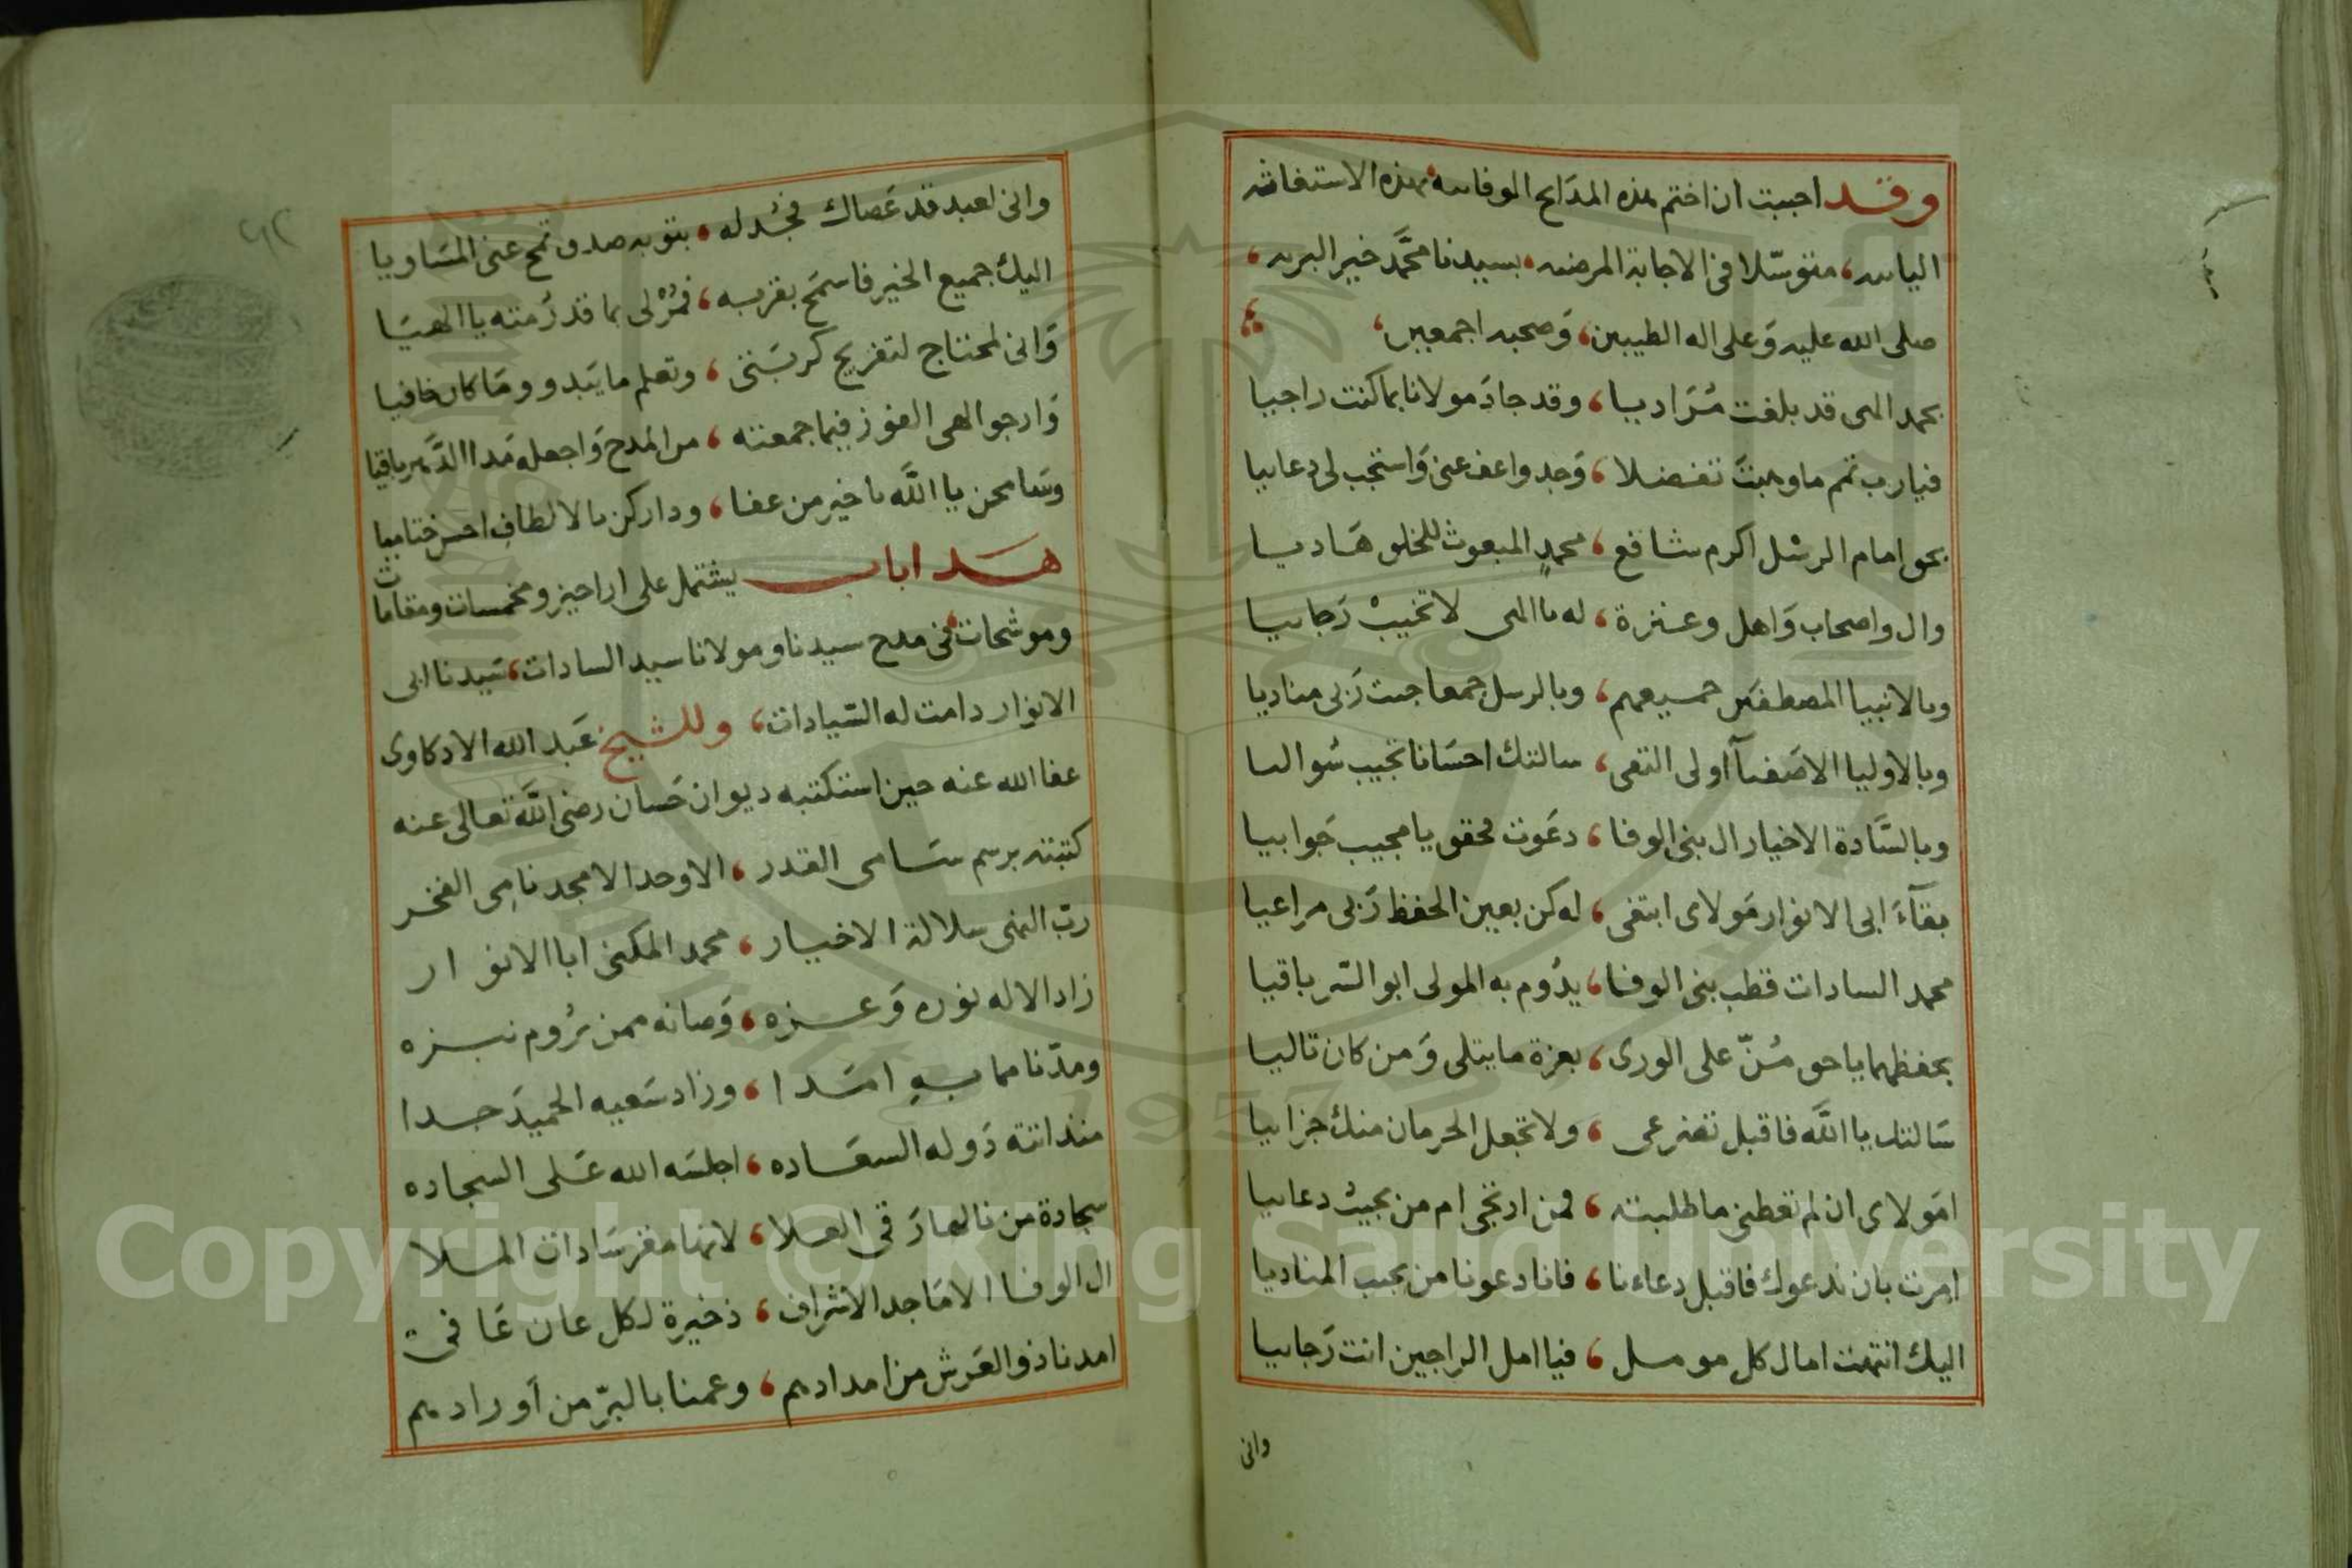 وقد احببت ان اختم هذه المدايح الوفاييه بهذه الاستغاثه
الياييه، متوسّلا في الاجابة المرضيه، بسيدنا محمَّد خير البريه،
صلى الله عليه وَعلى اله الطيبين، وَصحبه اجمعين،
بحمد الهى قد بلغت مُرَاديا، وقد جادَ مولانا بما كنت راجيا
فيارب تمم ماوهبتَ تفضلا، وَجد واعف عنى وَاستجب لى دعاييا
بحق امام الرسْل اكرم شافع، محمدٍ المبعوث للخلق هَاديا
وال واصحاب وَاهل وعترة، له يا الهى لا تخيبْ رَجاييا
وبالانبيا المصطفَين جميعهم، وبالرسل جمعا جيت رَبى مناديا
وبالاوليا الاصَفيآ اولى التقى، سالتك احسَانا تجيب سُواليا
وبالسَّادة الاخيار ال بنى الوفا، دعَوت فحقق يا مجيب جَوابيا
بقآءَ ابى الانوار مَولاى ابتغى، له كن بعين الحفظ رَبى مراعيا
محمد السادات قطب بنى الوفا، يدُوم به المولى ابو السّر باقيا
بحفظهما ياحق مُنّ على الورى، بعزة ما يتلى وَمن كان تاليا
سَالتك يا اللَّه فاقبل تضرعى، ولا تجعل الحرمان منك جزاييا
امَولاى ان لم تعطنى ما طلبته، فمن ارتجى ام من يجيبُ دعاييا
امرت بان ندعوك فاقبل دعاءنا، فانا دعونا من يجيب المناديا
اليك انتهت امال كل مومل، فيا امل الراجين انت رَجاييا
وانى
وانى لعبد قد عَصاك فجُد له، بتوبه صدق تمح عنى المسَاويا
اليك جميع الخير فاسمَح بقربه، فمُرْ لى بما قد رُمته يا الهيَا
وَانى لمحتاج لتفريج كربَتى، وتعلم ما يَبدو ومَا كان خافيا
وَارجوا الهى الفوز فيما جمعته، من المدح وَاجعله مَدا الدَّهر باقيا
وسَامحن يا اللَّه يا خير من عفا، ودارکن بالالطافِ احسن ختاميا
هَذا باب يشتمل على اراجيز ومخمسات ومقامات
وموشحات، فى مدح سيدنا ومولانا سيد السادات، سَيدنا ابى
الانوار دامت له السّيادات، وللشيخ عَبد الله الادكاوى
عفا الله عنه حين استكتبه ديوان حَسان رضى اللَّه تعالى عنه
كتبته برسم سَامى القدر، الاوحد الامجد نامِى الفخر
ربّ النهى سلالة الاخيار، محمد المكنى ابا الانوار
زاد الاله نوره وَعزه، وَصانه ممن يرُوم نبزه
ومدّنا مما بهِ امَدا، وزاد سَعيه الحميدَ جدا
منذ اتته دَوله السعَاده، اجلسَه الله عَلى السجاده
سجادة من نالها رَقى العلا، لانها مقر سَادات الملا
ال الوفا الامَاجد الاشراف، ذخيرة لكل عان عَافى
امدنا ذو العَرش من امدادهم، وعمنا بالبرّ من اَورادهم
Copyright © King Saud University
1957